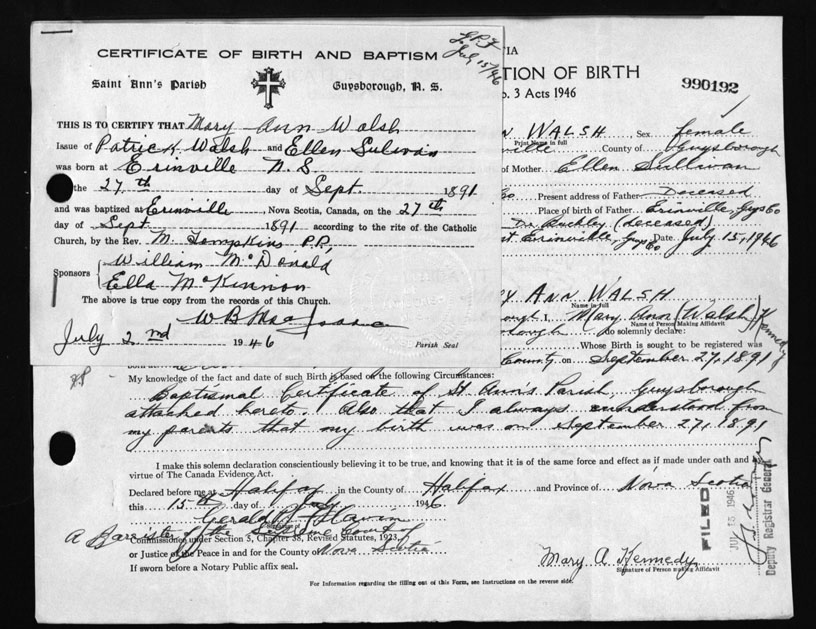 CERTIFICATE OF BIRTH AND BAPTISM
July 15/46
Saint Ann's Parish Guysborough, N. S.
THIS IS TO CERTIFY THAT Mary Ann Walsh
Issue of Patrick Walsh and Ellen Sulivan
was born at Erinville N.S
the 27th day of Sept. 1891
and was baptized at Erinville, Nova Scotia, Canada, on the 27th
day of Sept 1891 according to the rite of the Catholic
Church, by the Rev. M. Tompkins P.P,
Sponsors William McDonald
Ella McKinnon
The above is true copy from the records of this Church.
W B
July 2nd 1946 Parish Seal
TION OF BIRTH
990192
3 Acts 1946
WALSH Sex female
Print Name in full
ville County of Guysborough
of Mother Ellen Sullivan
Co Present address of Father Deceased
Place of birth of Father Erinville, Guys Co
Dr Buckley (deceased)
Erinville, Guys Co Date July 15, 1946
ANN WALSH
Name in full
I, Mary Ann (Walsh) Kennedy
Name of Person Making Affidavit
do solemnly declare:
Whose Birth is sought to be registered was
County on September 27, 1891
My knowledge of the fact and date of such Birth is based on the following Circumstances:
Baptismal Certificate of St Ann's Parish, Guysborough
attached hereto. Also that I always understood from
my parents that my birth was on September 27, 1891
I make this solemn declaration conscientiously believing it to be true, and knowing that it is of the same force and effect as if made under oath and
virtue of The Canada Evidence Act.
Declared before me at Halifax in the County of Halifax and Province of Nova Scotia
this 15th day of July 1946
Gerald P. Flavin
A Barrister of the Supreme Court of
Commissioned under Section 3, Chapter 38, Revised Statutes, 1923,
or Justice of the Peace in and for the County of Nova Scotia
If sworn before a Notary Public affix seal.
Mary A Kennedy
Signature of Person making Affidavit
For Information regarding the filling out of this Form, see Instructions on the reverse side.
FILED
JUL 15 1946
Deputy Registrar General